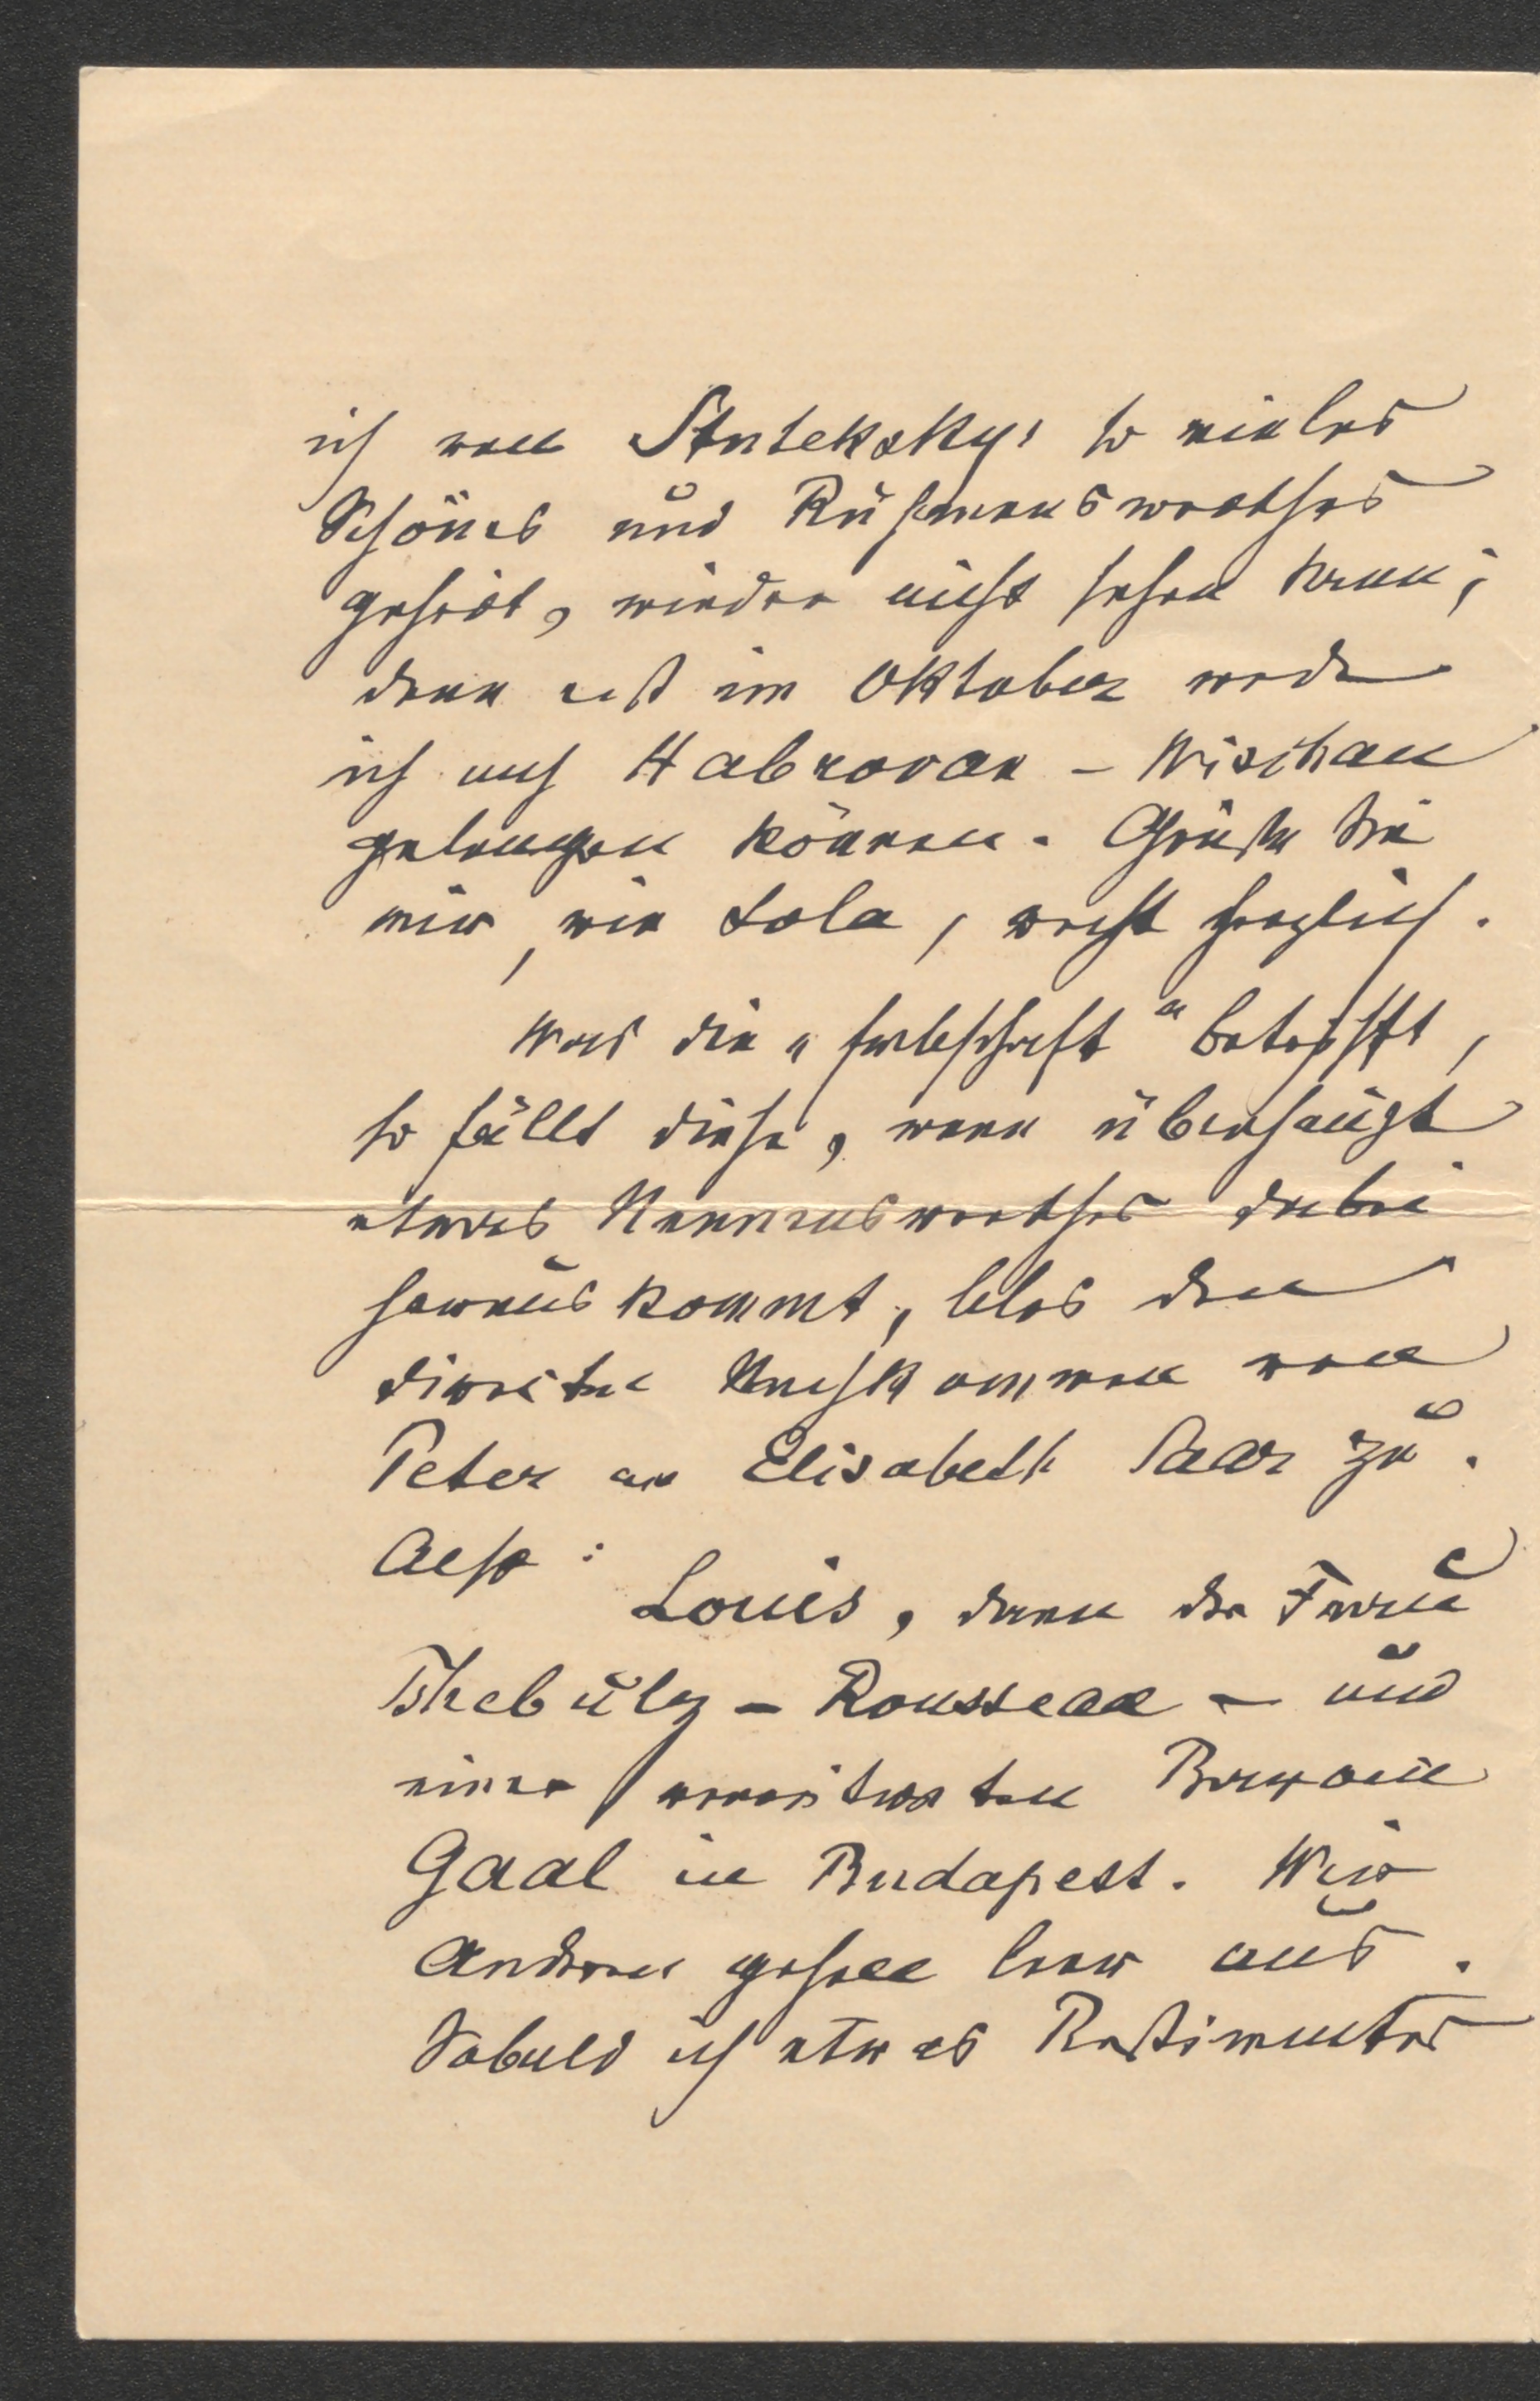 ich von Stuteksky's so vieles
Schönes und Rühmenswerthes
gehört, wieder nicht sehen kann;
denn erst im Oktober werde
ich nach Habrovan - Wischau
gelangen können. Grüße Sie
mir, wie Lola, recht herzlich.
Was die „Erbschaft" betrifft,
so fällt diese, wenn überhaupt
etwas Nennenswerthes dabei
herauskommt, blos den
direkten Nachkommen von
Peter und Elisabeth Saar zu.
Also:
Louis, dann der Frau
- Rousseau - und
einer verwitweten Baronin
Gaal in Budapest. Wir
Anderen gehen leer aus.
Sobald ich etwas Bestimmtes